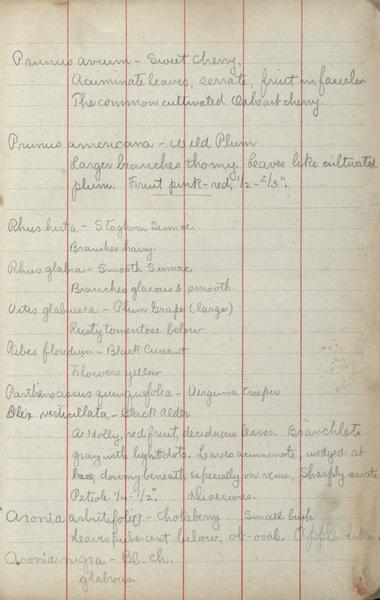 Prunus avium - Sweet Cherry,
Acuminate leaves, serrate, fruit in fascicles
The common cultivated Oxheart cherry.
Prunus americana - Wild Plum
Larger branches thorny. Leaves like cultivated
plum. Fruit pink-red, 1/2 - 2/3".
Rhus hirta - Staghorn Sumac
Branches hairy.
Rhus glabra - Smooth Sumac
Branches glacous & smooth.
Vitis glabrusca - Plum Grape (large)
Rusty tomentose below
Ribes floridum - Black Currant
Flowers yellow
Parthenocissus quinquefolia - Virginia Creeper
Ilex verticillata - Black Alder
A Holly, red fruit, deciduous leaves. Branchlets
gray with light dots. Leaves acuminate, wedged at
base, downy beneath especially on veins, Sharply serrate
Petiole 1/4 - 1/2". Dioecious.
Aronia arbutifolia - Chokeberry Small bush
Leaves pubescent below, ob-oval. Apple like
Aronia nigra - Bl. Ch.
glabrous.